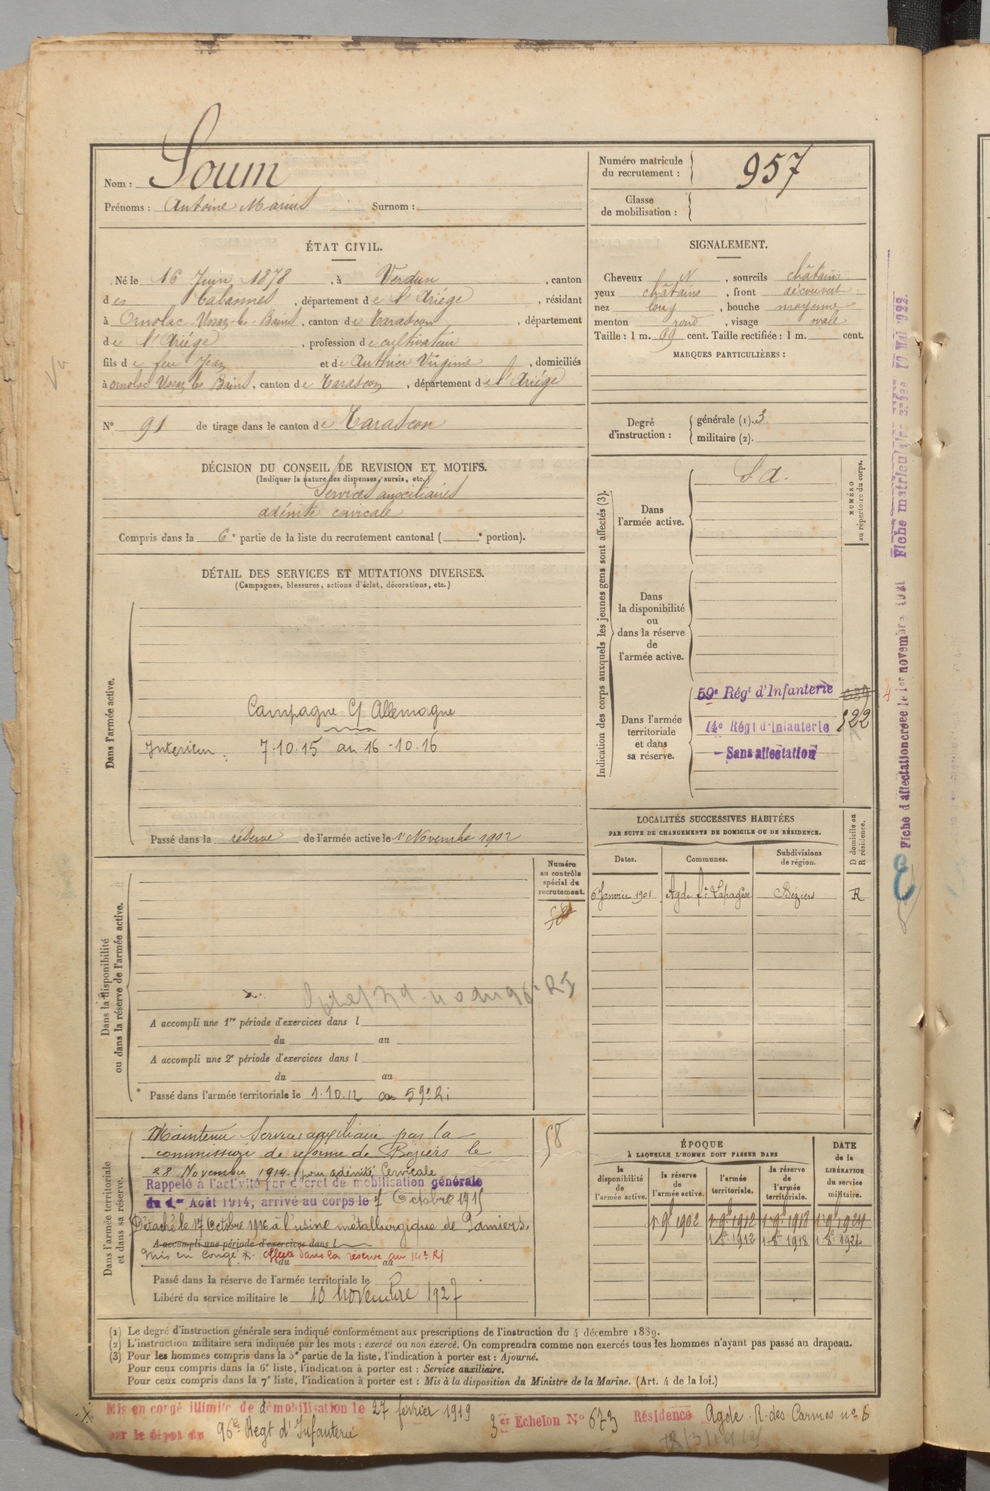 Nom : Soum
Prénoms : Antoine Marius Surnom :
Numéro matricule
du recrutement : 957
Classe
de mobilisation :
ÉTAT CIVIL.
Né le 16 Juin 1878, à Verdun, canton
des Cabannes, département de l'Ariége, résidant
à Ornolac Ussat-les-Bains, canton de Tarascon, département
de l'Ariége, profession de cultivateur
fils de feu Jean et de Authier Virginie, domiciliés
à Ornolac Ussat les Bains, canton de Tarascon, département de l'Ariége
N° 91 de tirage dans le canton de Tarascon
SIGNALEMENT.
Cheveux N, sourcils châtains
yeux châtains, front découvert
nez long, bouche moyenne
menton rond, visage ovale
Taille : 1 m. cent. Taille rectifiée : 1 m. cent.
MARQUES PARTICULIÈRES :
Degré
d'instruction :
générale (1). 3
militaire (2).
DÉCISION DU CONSEIL DE REVISION ET MOTIFS.
(Indiquer la nature des dispenses, sursis, etc.)
Services auxiliaires
adénite cervicale
Compris dans la 6e partie de la liste du recrutement cantonal ( e portion).
DÉTAIL DES SERVICES ET MUTATIONS DIVERSES.
(Campagnes, blessures, actions d'éclat, décorations, etc.)
Dans l'armée active.
Campagne C/ Allemagne
Intérieur : 7.10.15 au 16-10.16
Passé dans la réserve de l'armée active le 1er Novembre 1902
Indication des corps auxquels les jeunes gens sont affectés (3).
NUMÉRO
au répertoire du corps.
Dans
l'armée active.
S.a.
Dans
la disponibilité
ou
dans la réserve
de
l'armée active.
Dans l'armée
territoriale
et dans
sa réserve.
59e Régt d'Infanterie
14e Régt d'Infanterie
— Sans affectation
LOCALITÉS SUCCESSIVES HABITÉES
PAR SUITE DE CHANGEMENTS DE DOMICILE OU DE RÉSIDENCE.
Dates. Communes. Subdivisions de région. D domicile ou R résidence.
6 Janvier 1901 Agde Béziers R
Dans la disponibilité
ou dans la réserve de l'armée active.
Numéro
au contrôle
spécial du
recrutement.
A accompli une 1re période d'exercices dans l
du au
A accompli une 2e période d'exercices dans l
du au
Passé dans l'armée territoriale le 1.10.12 au 59e Ri
Dans l'armée territoriale
et dans sa réserve.
58
Maintenu Service auxiliaire par la
commission de réforme de Béziers le
28 Novembre 1914 pour adénite Cervicale
Rappelé à l'activité par décret de mobilisation générale
du 1er Août 1914, arrivé au corps le 7 Octobre 1915
Détaché le 17 Octobre 1916 à l'usine métallurgique de Pamiers.
A accompli une période d'exercices dans l
Mis en Congé * affecté dans la réserve au 14e RI
du au
Passé dans la réserve de l'armée territoriale le
Libéré du service militaire le 10 novembre 1927
ÉPOQUE
À LAQUELLE L'HOMME DOIT PASSER DANS
la disponibilité de l'armée active. la réserve de l'armée active. l'armée territoriale. la réserve de l'armée territoriale.
DATE de la LIBÉRATION du service militaire.
1 9bre 1902 1 9bre 1912 1 9bre 1918 1 9bre 1924
1 8bre 1912 1 8bre 1918 1 8bre 1924
(1) Le degré d'instruction générale sera indiqué conformément aux prescriptions de l'instruction du 4 décembre 1889.
(2) L'instruction militaire sera indiquée par les mots : exercé ou non exercé. On comprendra comme non exercés tous les hommes n'ayant pas passé au drapeau.
(3) Pour les hommes compris dans la 5e partie de la liste, l'indication à porter est : Ajourné.
Pour ceux compris dans la 6e liste, l'indication à porter est : Service auxiliaire.
Pour ceux compris dans la 7e liste, l'indication à porter est : Mis à la disposition du Ministre de la Marine. (Art. 4 de la loi.)
Mis en congé illimité de démobilisation le 27 février 1919 3er Echelon N° 673 Résidence Agde R. des Carmes n° 8
par le dépôt du 96e Régt d'Infanterie
Fiche d'affectation créée le 1er novembre 1921 Fiche matriculaire créée 10 Mai 1922.